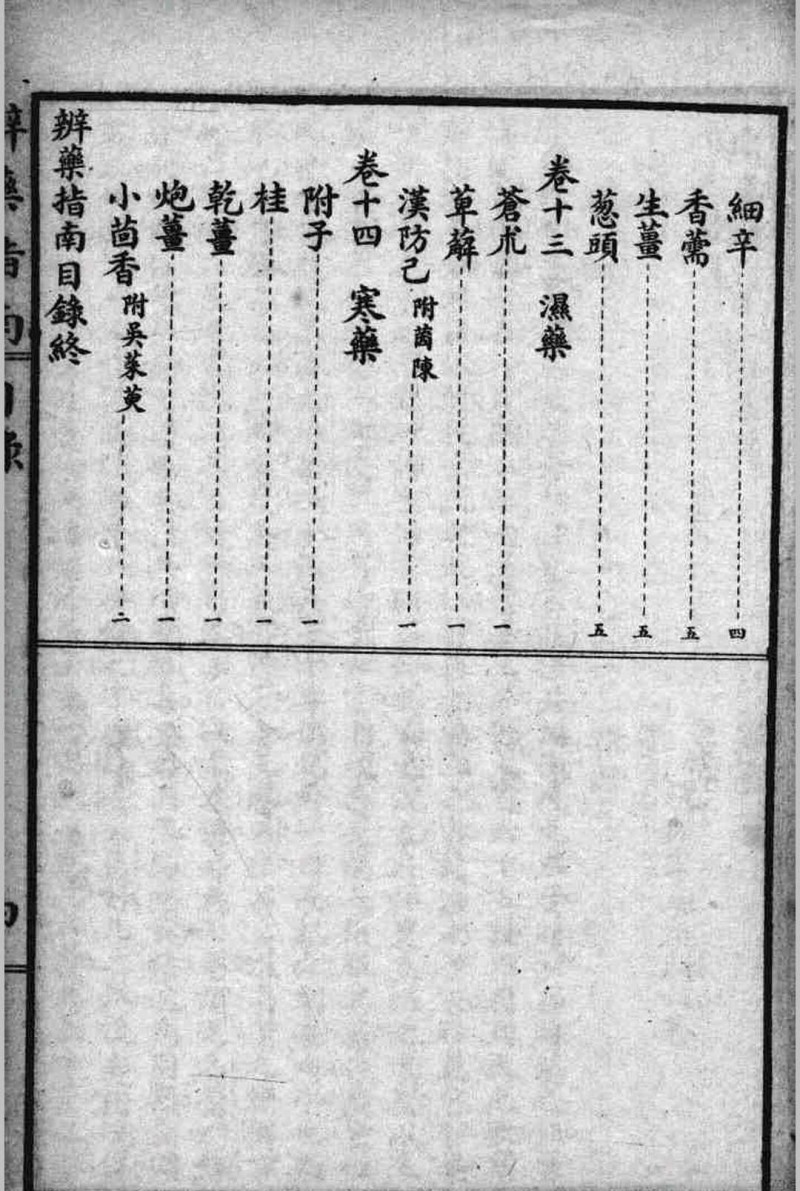 細辛 四
香薷 五
生薑 五
葱頭 五
卷十三 濕藥
蒼朮 一
萆薢 一
漢防己 附茵陳 一
卷十四 寒藥
附子 一
桂 一
乾薑 一
炮薑 一
小茴香 附吳茱萸 二
辨藥指南目錄終